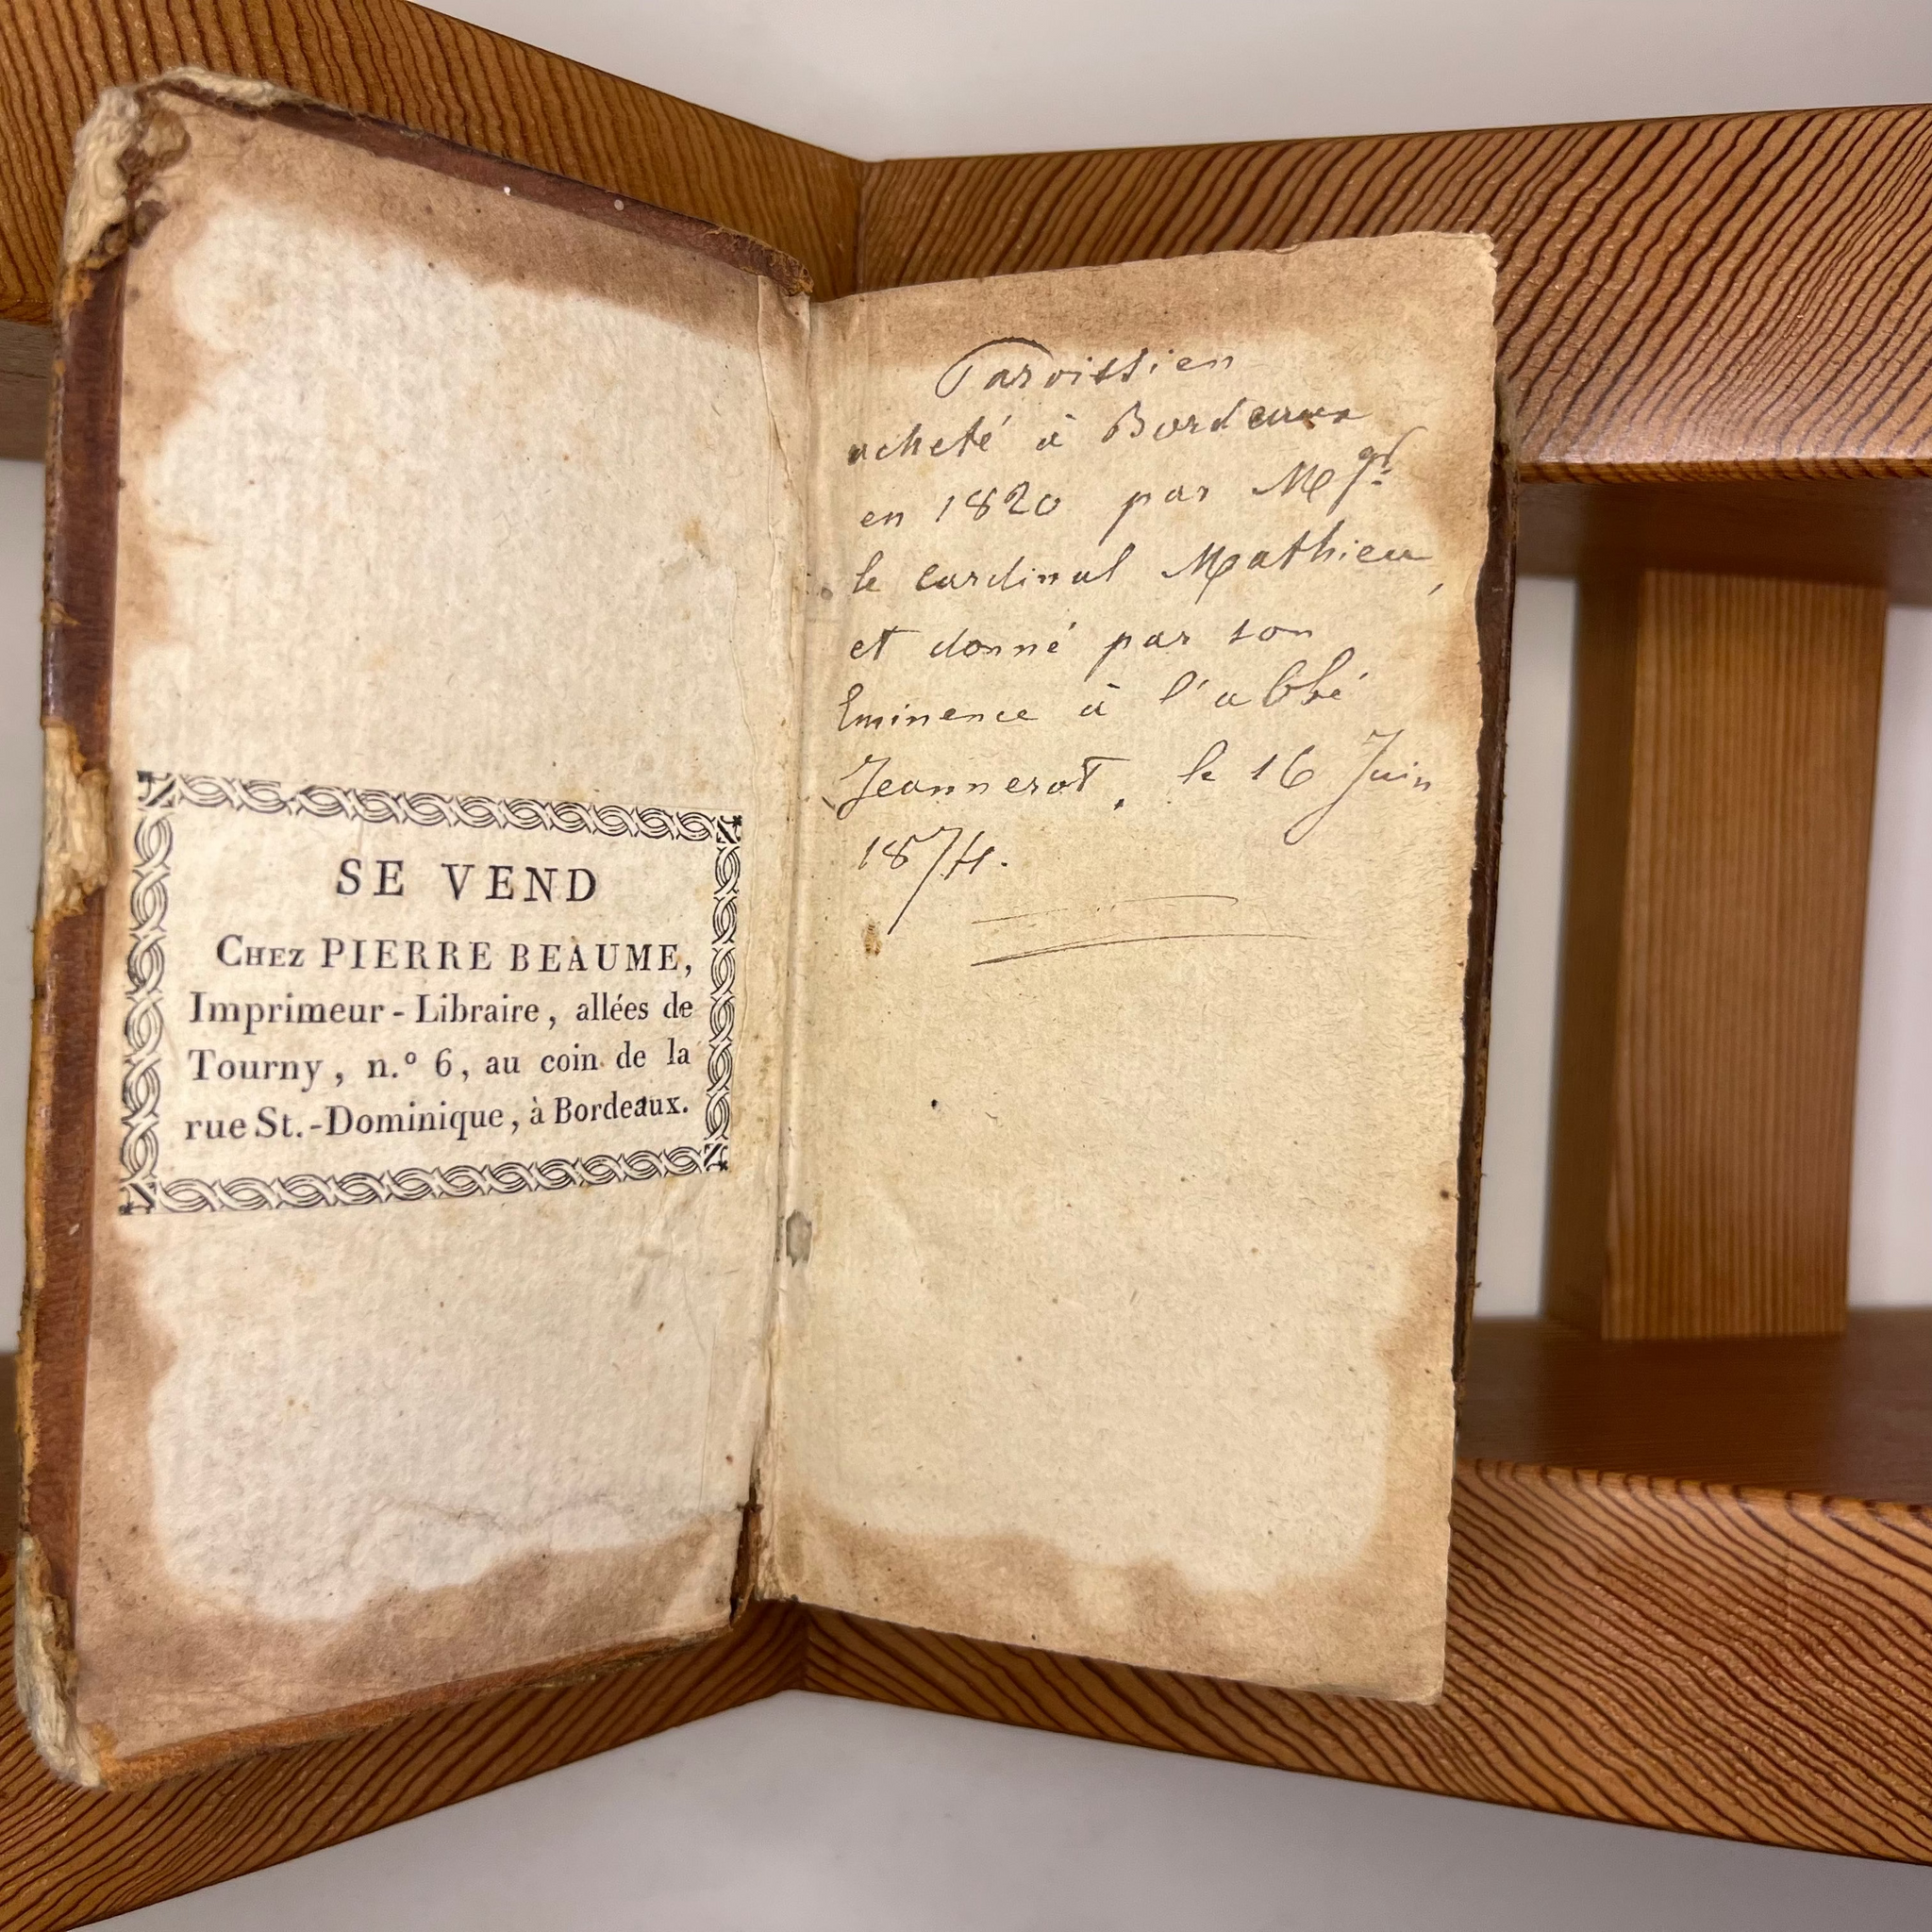 SE VEND
CHEZ PIERRE BEAUME,
Imprimeur-Libraire, allées de
Tourny, n.º 6, au coin de la
rue St.-Dominique, à Bordeaux.
Paroissien
acheté à Bordeaux
en 1820 par Mgr
le cardinal Mathieu,
et donné par son
Eminence à l'abbé
Jeannerot, le 16 Juin
1874.